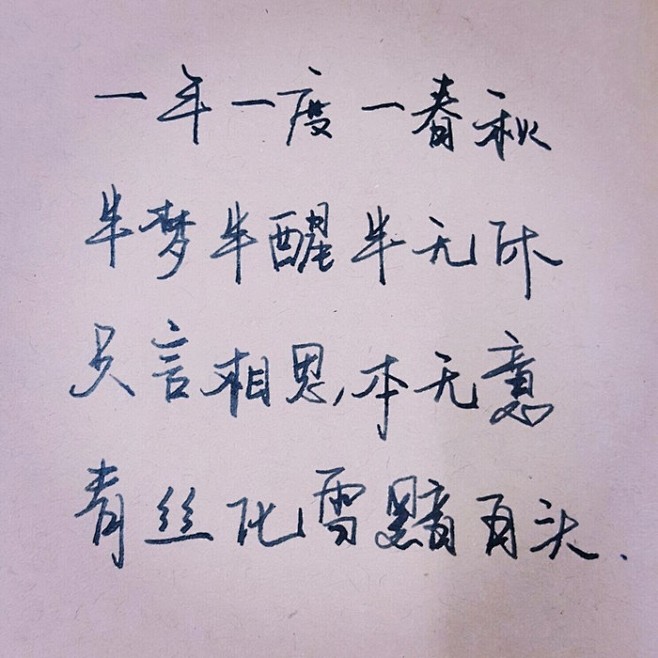 一年一度一春秋
半梦半醒半无休
只言相思本无意
青丝化雪黯白头.